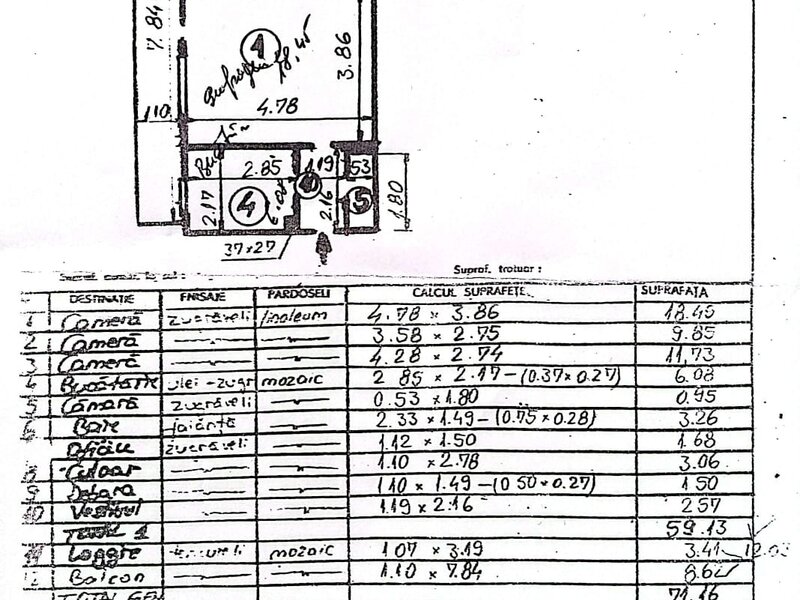 7.84
1
18.45
3.86
4.78
1.10
2.85
1.19
53
2.17
4
10
2.16
5
1.80
37×27
Supraf. trotuar :
DESTINAȚIE FINISAJE PARDOSELI CALCUL SUPRAFEȚE SUPRAFAȚA
1 Cameră zugrăveli linoleum 4.78 × 3.86 18.45
2 Cameră 3.58 × 2.75 9.85
3 Cameră 4.28 × 2.74 11,73
4 Bucătărie ulei-zugr mozaic 2.85 × 2.17-(0.37×0.27) 6.08
5 Cămară zugrăveli 0.53 × 1.80 0.95
6 Baie faianță 2.33 × 1.49-(0.75×0.28) 3.26
Oficiu zugrăveli 1.12 × 1.50 1.68
8 Culoar 1.10 × 2.78 3.06
9 Debara 1.10 × 1.49-(0.50×0.27) 1.50
10 Vestibul 1.19 × 2.16 2.57
Total 1 59.13
11 Loggie mozaic 1.07 × 3.19 3.41
12 Balcon 1.10 × 7.84 8.62
TOTAL GEN 71.16